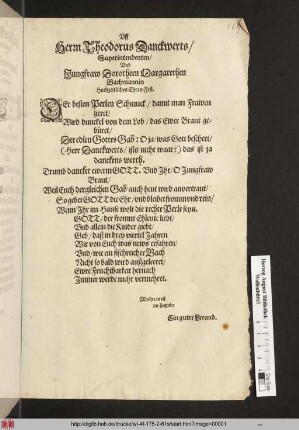 Uff
Herrn Theodorus Danckwerts/
Superintendenten/
Und
Jungfraw Dorotheen Margarethen
Bachmannin
Hochzeitlichen Ehren-Fest.
DEr besten Perlen Schmuck / damit man Frawen
zieret/
Wird dunckel von dem Lob / das Ewer Braut ge-
büret/
Der edlen Gottes Gab: O ja/ was Gott beschert/
(Herr Danckwerts / ists nicht waar?) das ist ja
danckens werth.
Drumb dancket ewrem GOTT. Und Ihr/ O Jungfraw
Braut/
Weil Euch dergleichen Gab auch heut wird anvertraut/
So gebet GOTT die Ehr/ und bleibet fromm und rein/
Wenn Ihr im Hause wolt die rechte Perle seyn.
GOTT/ der fromme Eheleut liebt/
Und allein die Kinder giebt/
Geb/ daß in drey viertel Jahren
Wir von Euch was news erfahren/
Und/ wie ein fischreicher Bach
Nicht so bald wird außgeleeret/
Ewre Fruchtbarkeit hernach
Immer werde mehr vermehret.
zur Zugabe
Ein guter Freund.
Herzog August Bibliothek
Wolfenbüttel
http://diglib.hab.de/drucke/xb-4f-175-2-61s/start.htm?image=00001